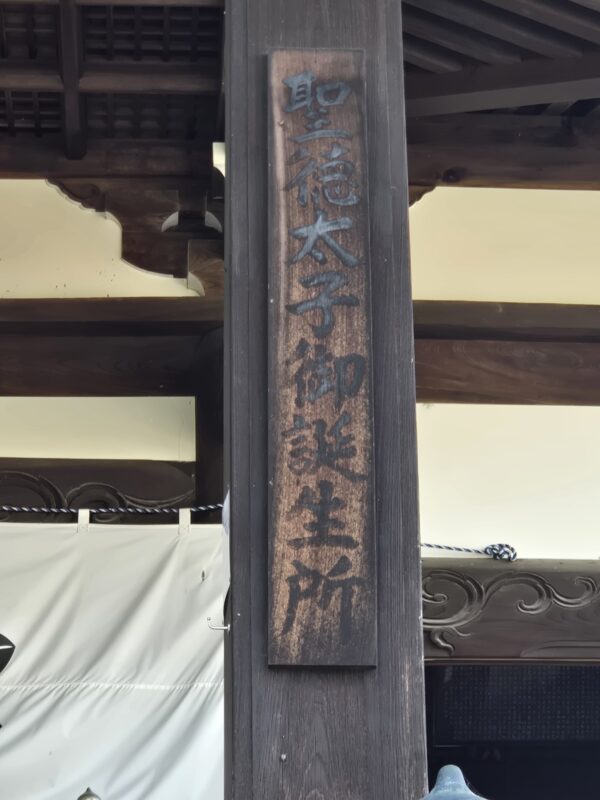 聖徳太子御誕生所